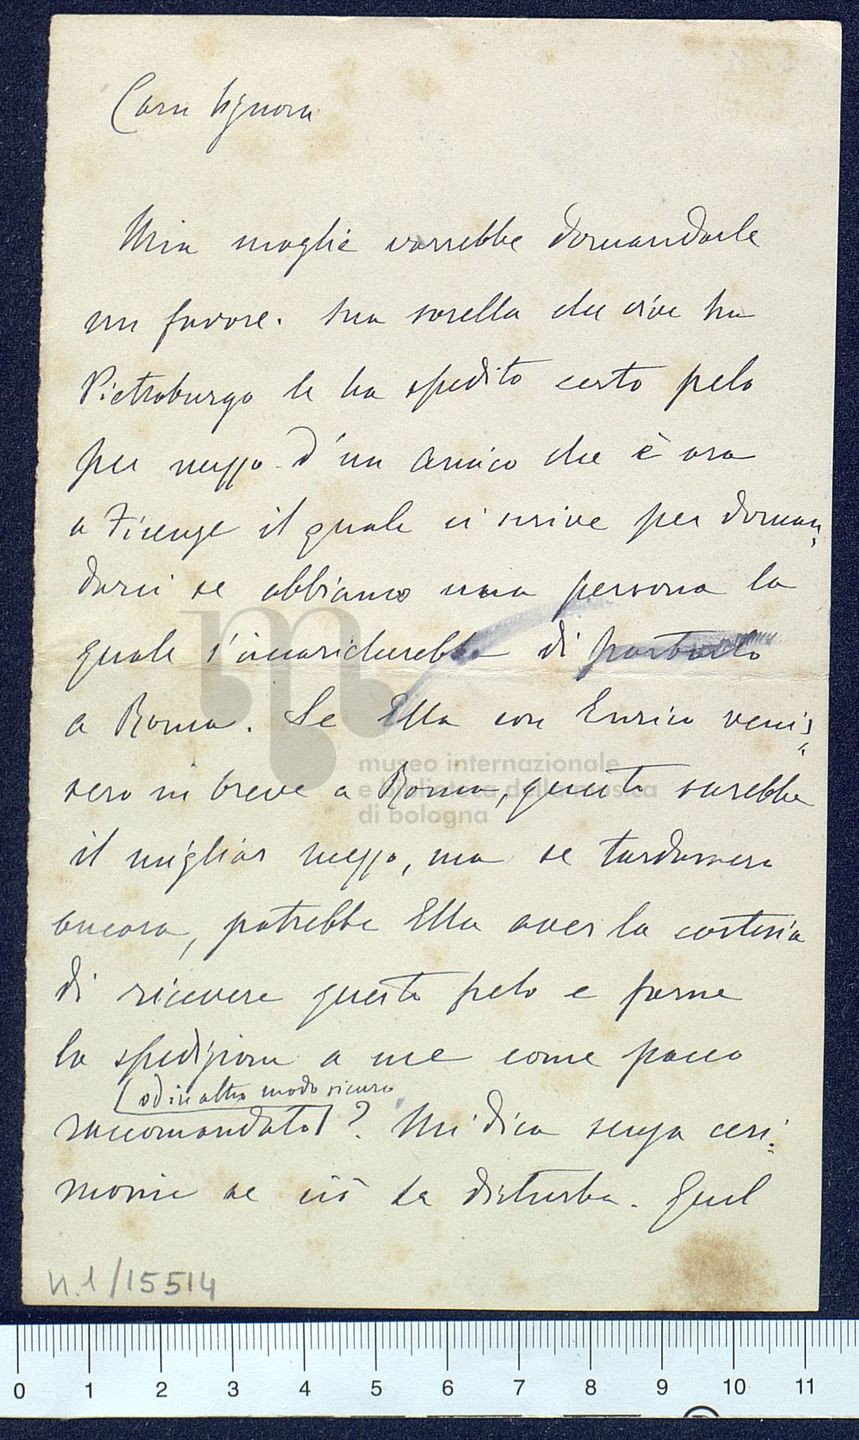 Cara Signora
Mia moglie vorrebbe domandarle
un favore. Sua sorella che vive ha
Pietroburgo le ha spedito certo pelo
per mezzo d'un amico che è ora
a Firenze il quale ci scrive per doman-
darci se abbiamo una persona la
quale s'incaricherebbe di portarlo
a Roma. Se Ella con Enrico venis-
sero in breve a Roma, questo sarebbe
il miglior mezzo, ma se tardassero
ancora, potrebbe Ella aver la cortesia
di ricevere questo pelo e farne
la spedizione a me come pacco
od in altro modo sicuro
raccomandato? Mi dica senza ceri-
monie se ciò La disturba. Quel
N.1/15514
museo internazionale
e biblioteca della musica
di bologna
0 1 2 3 4 5 6 7 8 9 10 11